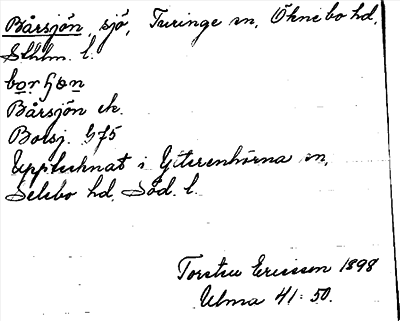 Bårsjön, sjö, Turinge sn, Öknebo hd,
Sthlm. l.
Bårsjön ek.
Upptecknat i Ytterenhörna sn,
Selebo hd, Söd. l.
Torsten Ericsson 1898
Ulma 41:50.